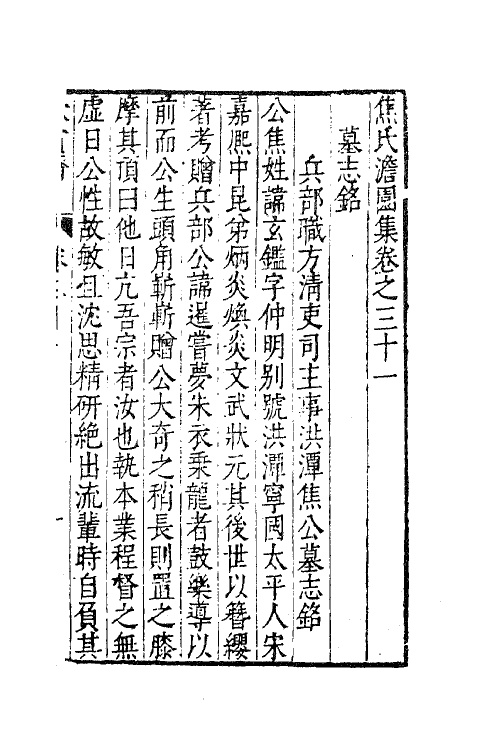 焦氏澹園集卷之三十一
墓志銘
兵部職方清吏司主事洪潭焦公墓志銘
公焦姓諱玄鑑字仲明別號洪潭寧國太平人宋
嘉熈中昆弟炳炎煥炎文武狀元其後世以簪纓
著考贈兵部公諱暹嘗夢朱衣乗龍者鼓樂導以
前而公生頭角嶄嶄贈公大奇之稍長則置之膝
摩其頂曰他日亢吾宗者汝也執本業程督之無
虛日公性故敏且沈思精研絶出流輩時自負其